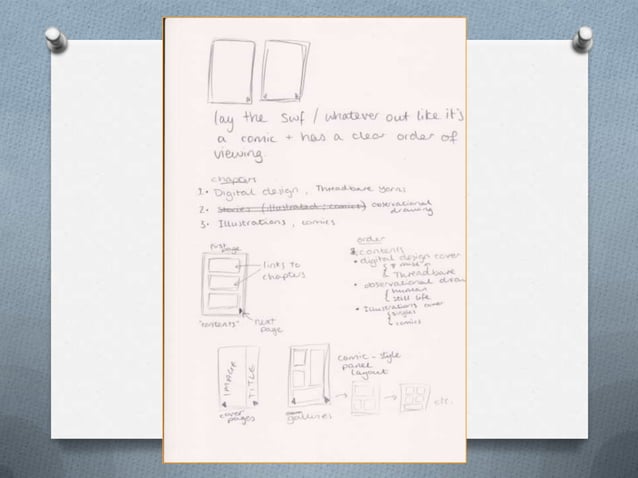 lay the swf / whatever out like it's
a comic + has a clear order of
viewing.
chapters
1. Digital design, Threadbare Yarns
2. Stories (illustrated; comics) observational
drawing
3. Illustrations, comics
first
page
links to
chapters
"contents"
next
page
order
contents
• digital design cover
Threadbare
• observational draw
human
still life
• Illustrations cover
singles
comics
IMAGE
TITLE
cover
pages
galleries
comic-style
panel
layout
etc.